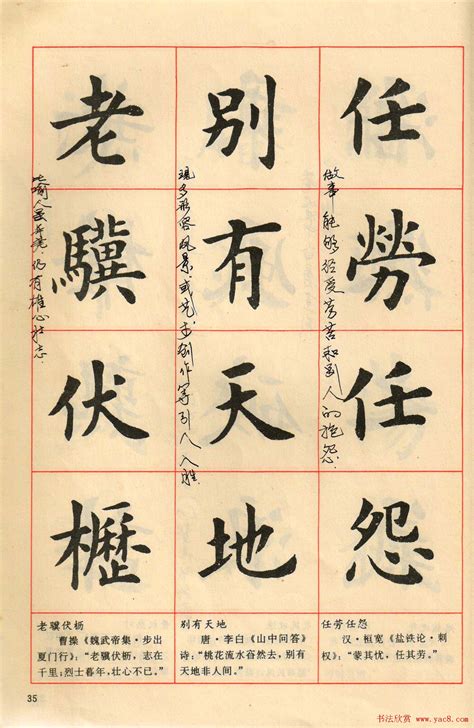 任勞任怨
做事能够经受劳苦和别人的抱怨.
任劳任怨
汉·桓宽《盐铁论·刺
权》：“蒙其忧，任其劳。”
别有天地
现多形容风景或艺术创作等引人入胜.
别有天地
唐·李白《山中问答》
诗：“桃花流水窅然去，别有
天地非人间。”
老驥伏櫪
比喻人虽年老,仍有雄心壮志.
老骥伏枥
曹操《魏武帝集·步出
夏门行》：“老骥伏枥，志在
千里；烈士暮年，壮心不已。”
35
书法欣赏 www.yac8.com